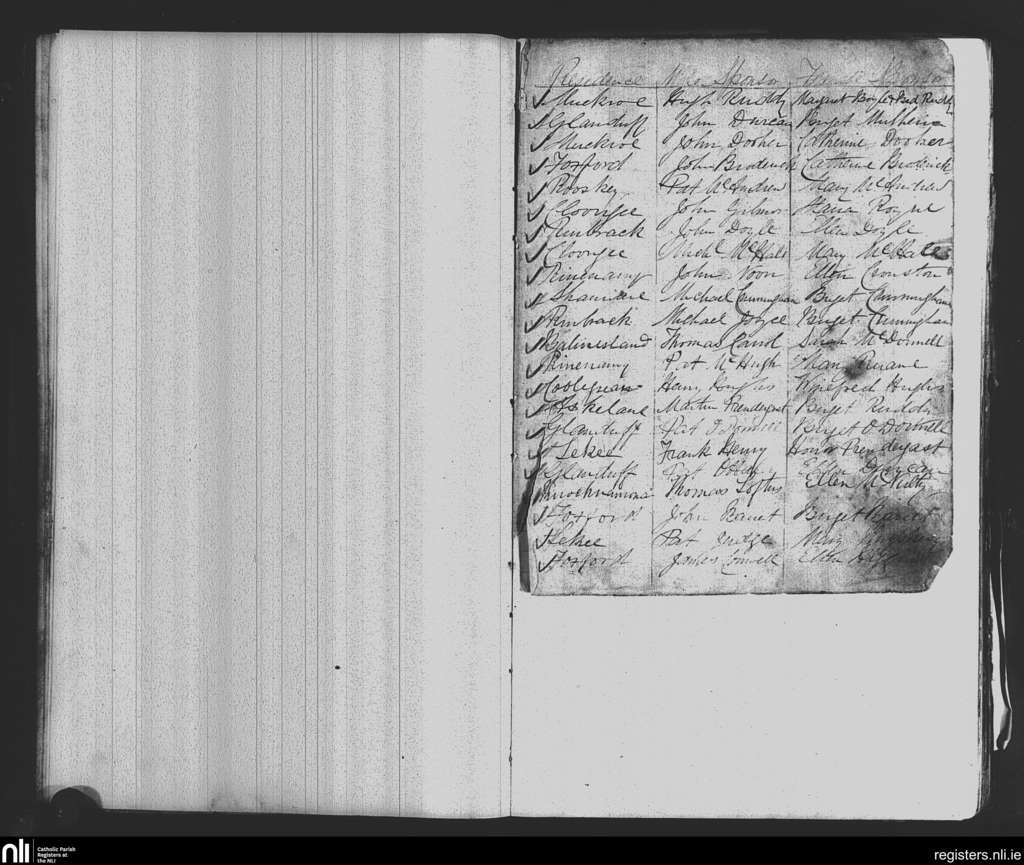 Residence Male Sponsor Female Sponsor
Muckroe Hugh Ruddy Margret Boyle & Brid Ruddy
Glanduff John Duncan Briget Mulherin
Muckroe John Dooher Catherine Dooher
Foxford John Broderick Catherine Brodrick
Rooskey Pat McAndrew Mary McAndrew
Cloongee John Gilmor Maria Rogue
Rinbrack John Doyle Ellen Doyle
Cloongee Michl McHale Mary McHale
Rinenamy John Noon Ellen Cronston
Michael Cunningham Briget Cunningham
Rinbrack Michael Joyce Briget Cunningham
Thomas Carrol Sarah McDonnell
Rinenamy Pat McHugh Mary Ruane
Hughes Winefred Hughs
Martin Prendergast Briget Ruddy
Glanduff Pat Briget O'Donnell
Lekee Frank Henry Honor Prendergast
Glanduff Pat Ellen Duncan
Thomas Loftus Ellen McNulty
Foxford John Barret Briget
Lekee Pat Judge Mary
Foxford James Ellen
nli
Catholic Parish
Registers at
the NLI
registers.nli.ie